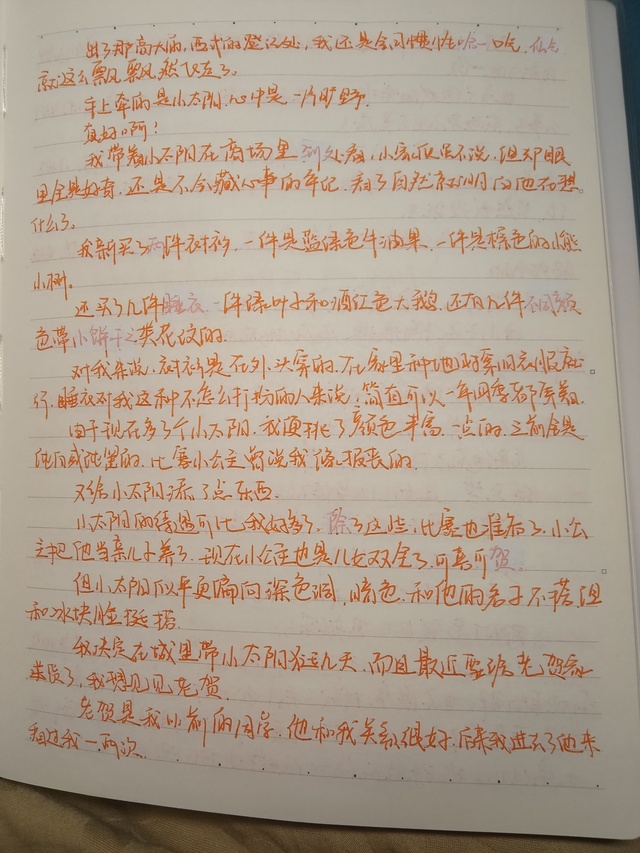 出了那高大的,西式的登记处,我还是会习惯性哈一口气,
就这么飘飘然飞走了。
手上牵的是小太阳,心中是一片旷野.
真好啊!
我带着小太阳在商场里到处逛,小家伙虽不说,但那眼
里全是好奇,还是不会藏心事的年纪,
什么。
我新买了两件衬衫,一件是蓝绿色牛油果,一件是棕色的小熊
小树。
还买了几件睡衣,一件绿叶子和酒红色大鹅,还有几件不同颜
色带小饼干之类花纹的.
对我来说,衬衫是在外头穿的,在家里种地时穿旧衣服就
行,睡衣对我这种不怎么打扮的人来说,简直可以一年四季都穿着.
由于现在多了个小太阳,我便挑了颜色丰富一点的,之前全是
纯白或纯黑的,比塞小公主曾说我像报丧的.
又给小太阳添了点东西.
小太阳的待遇可比我好多了,除了这些,比塞也准备了,小公
主把他当亲儿子养了,现在小公主也是儿女双全了,可喜可贺.
但小太阳似乎更偏向深色调,暗色,和他的名字不搭,但
和冰块脸挺搭.
我决定在城里带小太阳多玩几天,而且最近要给老贺家
送货了,我想见见老贺.
老贺是我以前的同学,他和我关系很好,后来我进去了他来
看过我一两次.